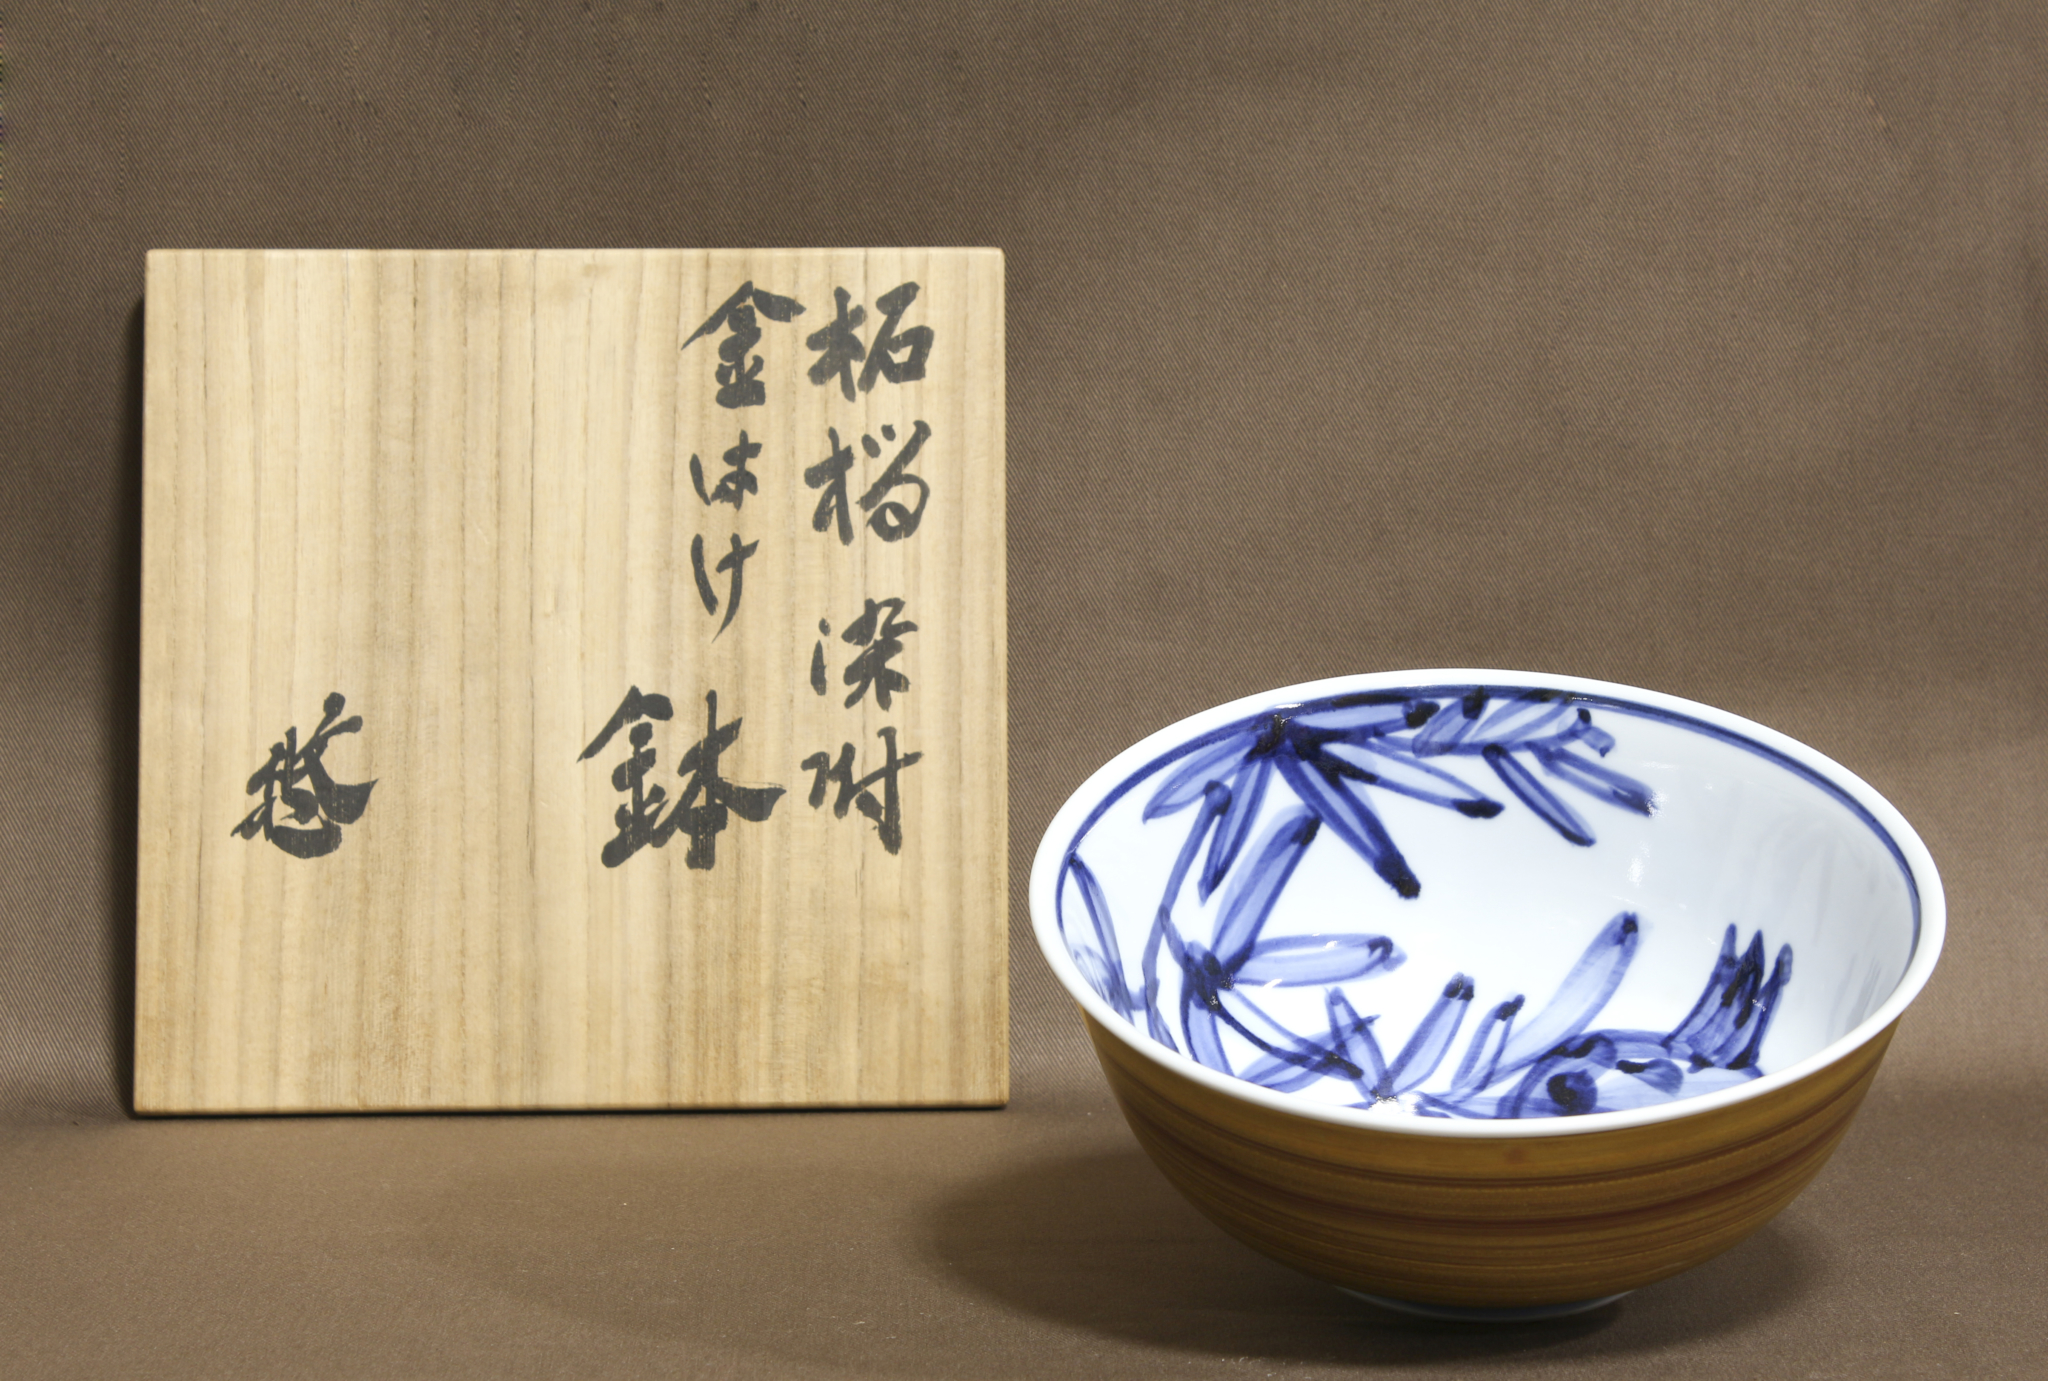 柘榴染附
金はけ
鉢
悠